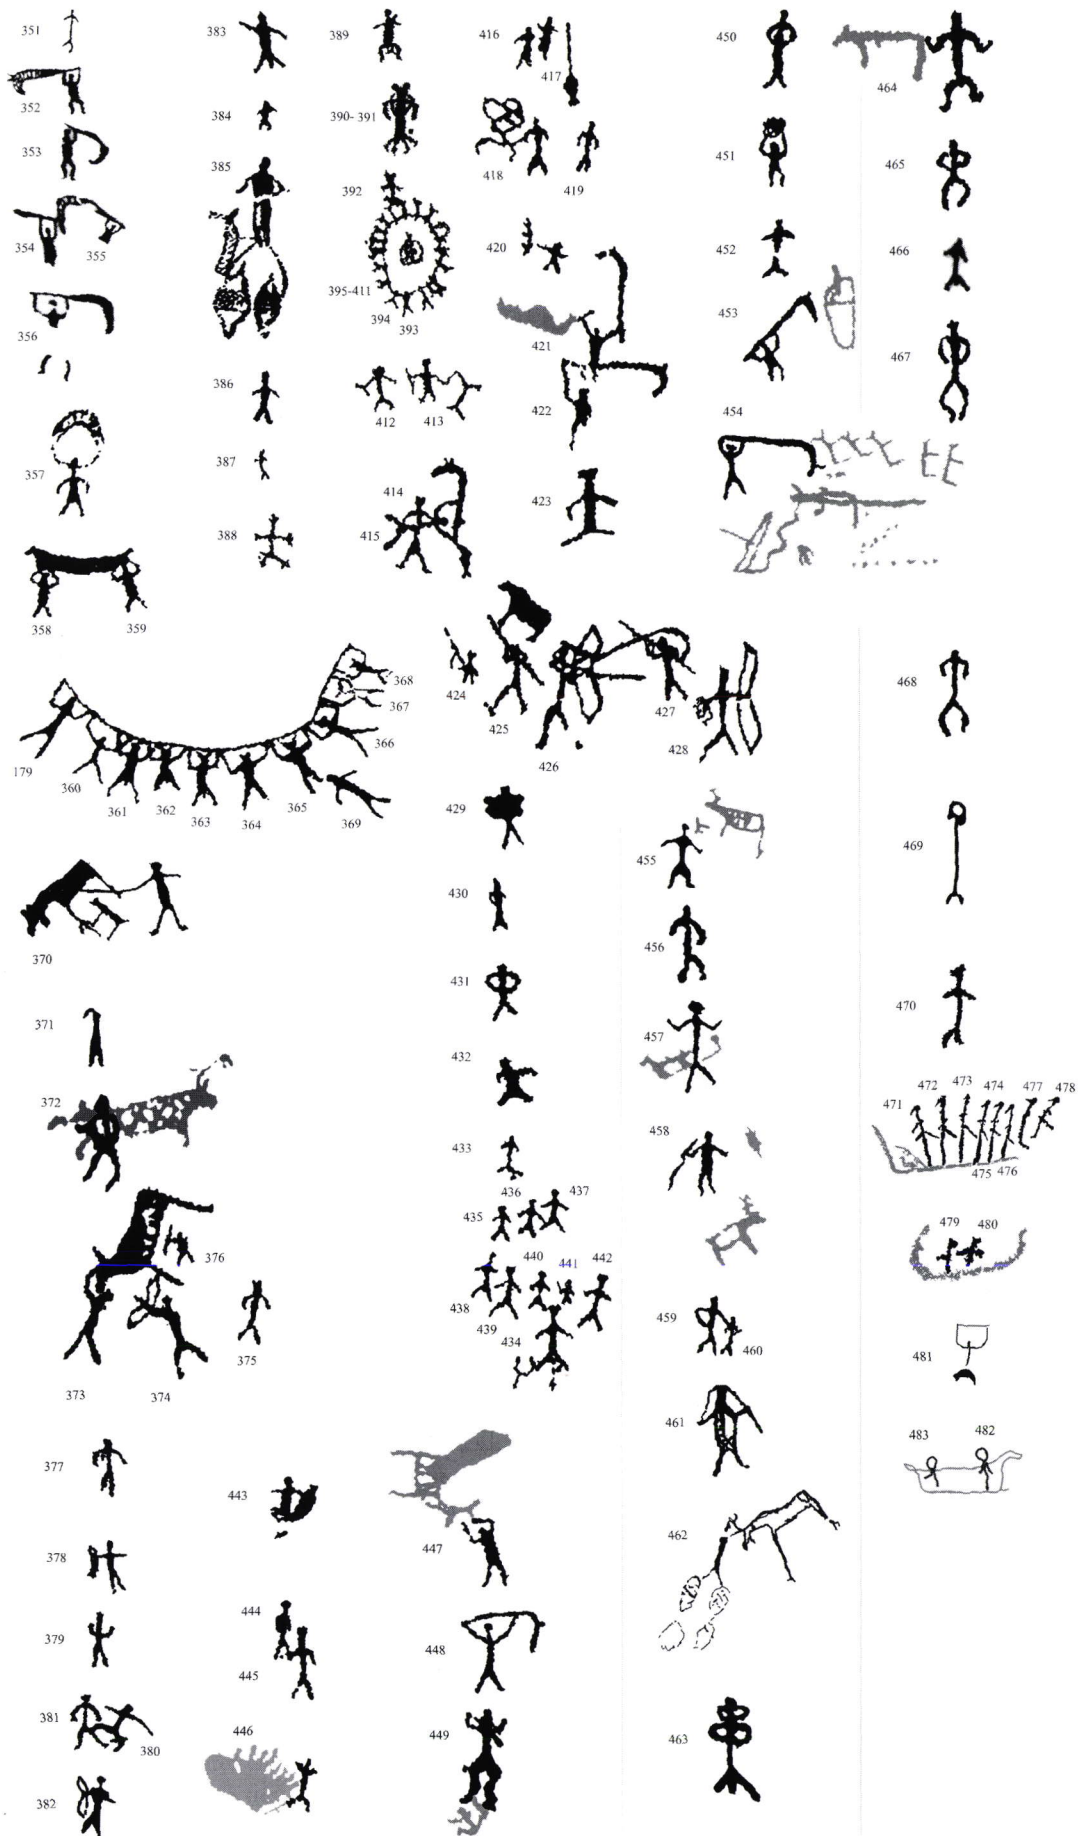 351
352
353
354
355
356
357
358
359
179
360
361
362
363
364
365
366
367
368
369
370
371
372
373
374
375
376
377
378
379
380
381
382
383
384
385
386
387
388
389
390-391
392
395-411
394
393
412
413
414
415
416
417
418
419
420
421
422
423
424
425
426
427
428
429
430
431
432
433
436
437
435
438
439
440
441
442
434
443
444
445
446
447
448
449
450
451
452
453
454
455
456
457
458
459
460
461
462
463
464
465
466
467
468
469
470
471
472
473
474
477
478
475
476
479
480
481
483
482